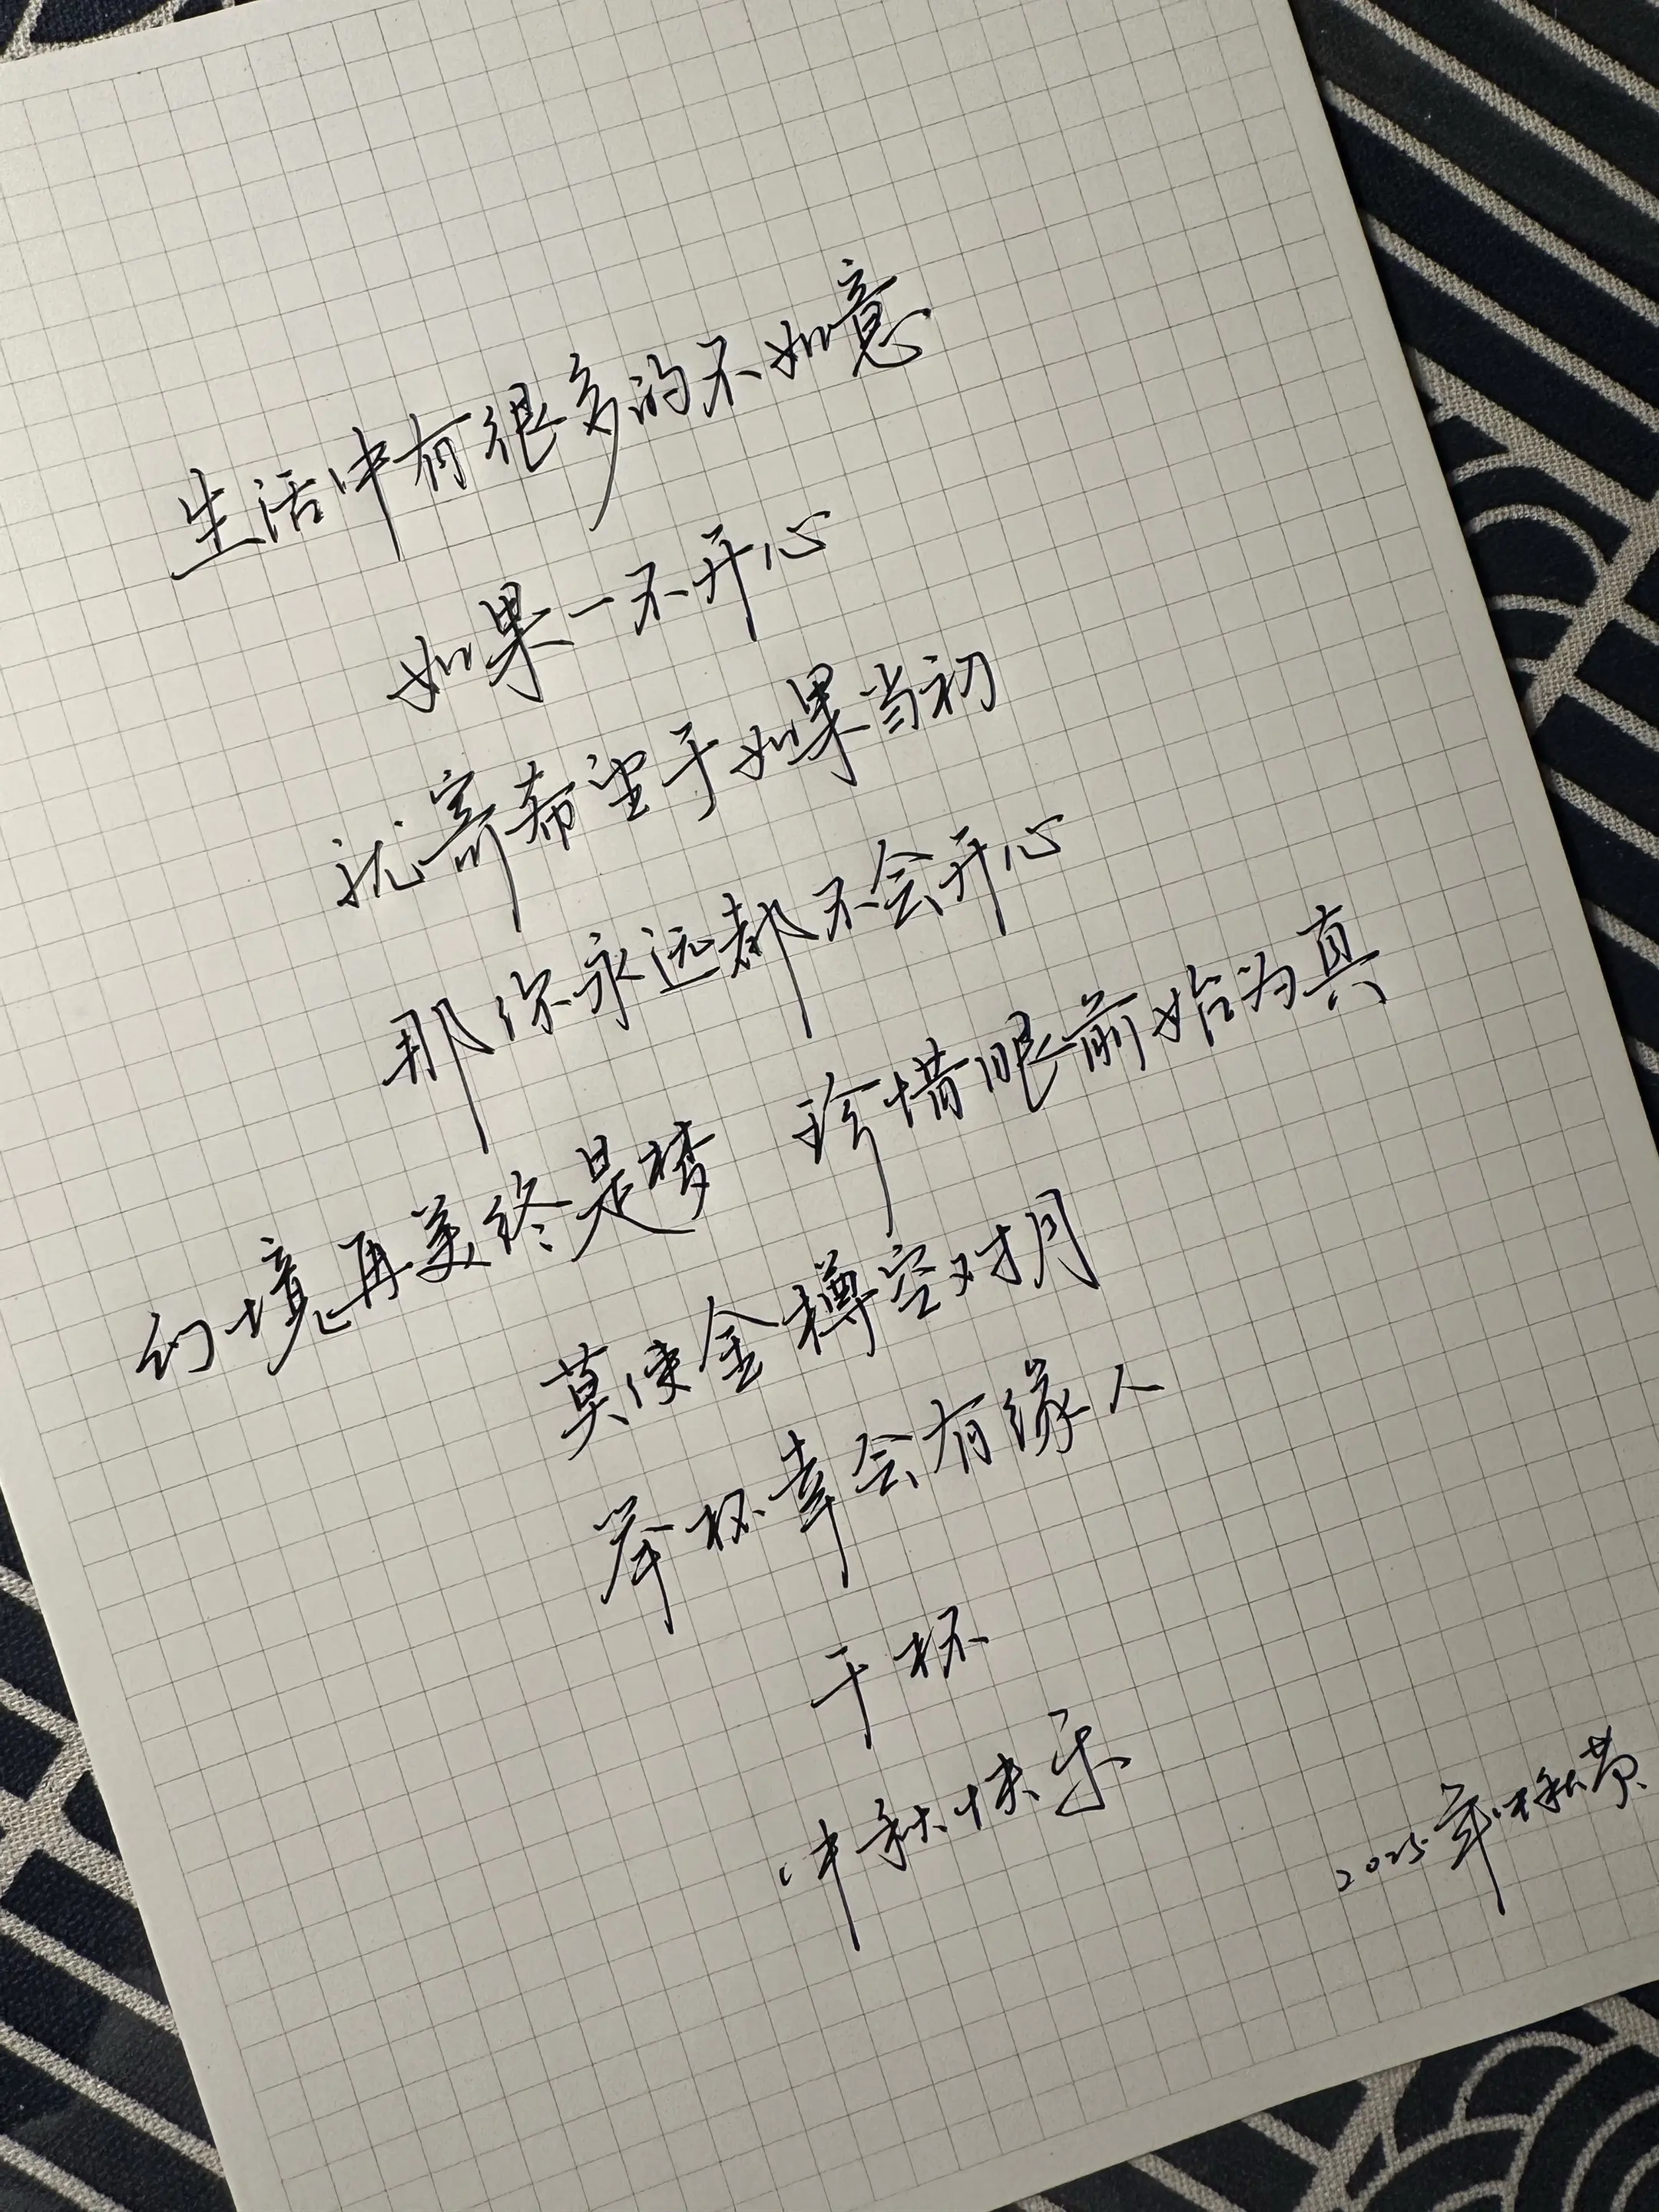 生活中有很多的不如意
如果一不开心
就寄希望于如果当初
那你永远都不会开心
幻境再美终是梦 珍惜眼前始为真
莫使金樽空对月
举杯幸会有缘人
干杯
中秋快乐
2025年中秋黄